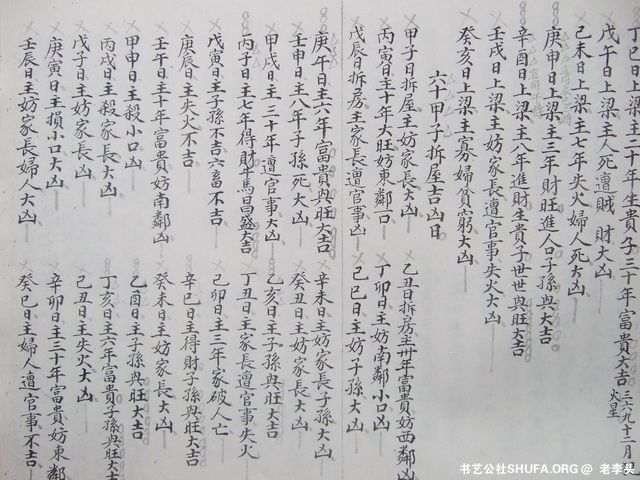 丁巳日上梁主二十年生貴子三十年富貴大吉 三六九十二月
火星
戊午日上梁主人死遭賊財大凶
己未日上梁主七年失火婦人死大凶
庚申日上梁主三年財旺進人口子孫興大吉
辛酉日上梁主八年進財生貴子世世興旺大吉
壬戌日上梁主妨家長遭官事失火大凶
癸亥日上梁主寡婦貧窮大凶
六十甲子拆屋吉凶日
甲子日拆屋主妨家長大凶
乙丑日拆房主卅年富貴妨西鄰凶
丙寅日主十年大旺妨東鄰凶
丁卯日主妨南鄰小口凶
戊辰日拆房主家長遭官事凶
己巳日主妨子孫大凶
庚午日主六年富貴興旺大吉
辛未日主妨家長子孫大凶
壬申日主八年子孫死大凶
癸丑日主妨家長大凶
甲戌日主三十年遭官事大凶
乙亥日主子孫興旺大吉
丙子日主七年得財牛馬昌盛大吉
丁丑日主家長遭官事失火
戊寅日主子孫不吉六畜不吉
己卯日主三年家破人亡
庚辰日主失火不吉
辛巳日主得財子孫興旺大吉
壬午日主十年富貴妨南鄰凶
癸未日主妨家長大凶
甲申日主殺小口凶
乙酉日主子孫興旺大吉
丙戌日主殺家長凶
丁亥日主六年富貴子孫興旺大吉
戊子日主妨家長凶
己丑日主失火大凶
庚寅日主損小口大凶
辛卯日主三十年富貴妨東鄰
壬辰日主妨家長婦人大凶
癸巳日主婦人遭官事不吉
书艺公社SHUFA.ORG @ 老李头